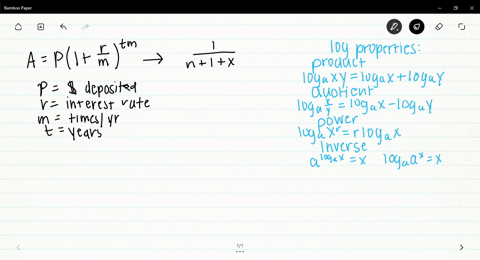 Bamboo Paper
A = P(1 + r/m)^tm → 1/(n+1+x)
P = $ deposited
r = interest rate
m = times/yr
t = years
log properties:
product
logₐxy = logₐx + logₐy
quotient
logₐ x/y = logₐx - logₐy
power
logₐxʳ = r logₐx
inverse
a^logₐx = x logₐaˣ = x
1/1